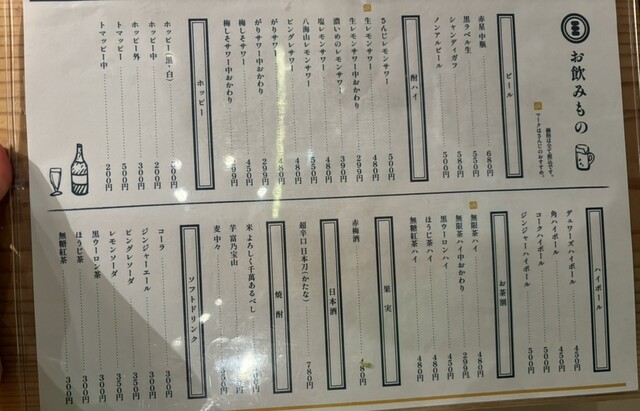 お飲みもの
価格は全て税込です。
マークはさんじのおすすめ。
ビール
赤星 中瓶 680円
黒ラベル 生 550円
シャンディガフ 580円
ノンアルビール 500円
酎ハイ
さんじレモンサワー 500円
生レモンサワー 480円
生レモンサワー中おかわり 299円
濃いめのレモンサワー 390円
塩レモンサワー 480円
八海山レモンサワー 550円
ピングレサワー 480円
がりサワー 480円
がりサワー中おかわり 299円
梅しそサワー 450円
梅しそサワー中おかわり 299円
ホッピー
ホッピー(黒・白) 500円
ホッピー中 200円
ホッピー外 300円
トマッピー 500円
トマッピー中 200円
ハイボール
デュワーズハイボール 450円
角ハイボール 450円
コークハイボール 500円
ジンジャーハイボール 500円
お茶割
無限茶ハイ 480円
無限茶ハイ中おかわり 299円
黒ウーロンハイ 450円
ほうじ茶ハイ 480円
無糖紅茶ハイ 480円
果実
赤梅酒 480円
日本酒
超辛口 日本刀(かたな) 780円
焼酎
米 よろしく千萬あるべし
芋 富乃宝山
麦 中々
ソフトドリンク
コーラ 300円
ジンジャーエール 300円
ピングレソーダ 350円
レモンソーダ 350円
黒ウーロン茶 300円
ほうじ茶 300円
無糖紅茶 300円